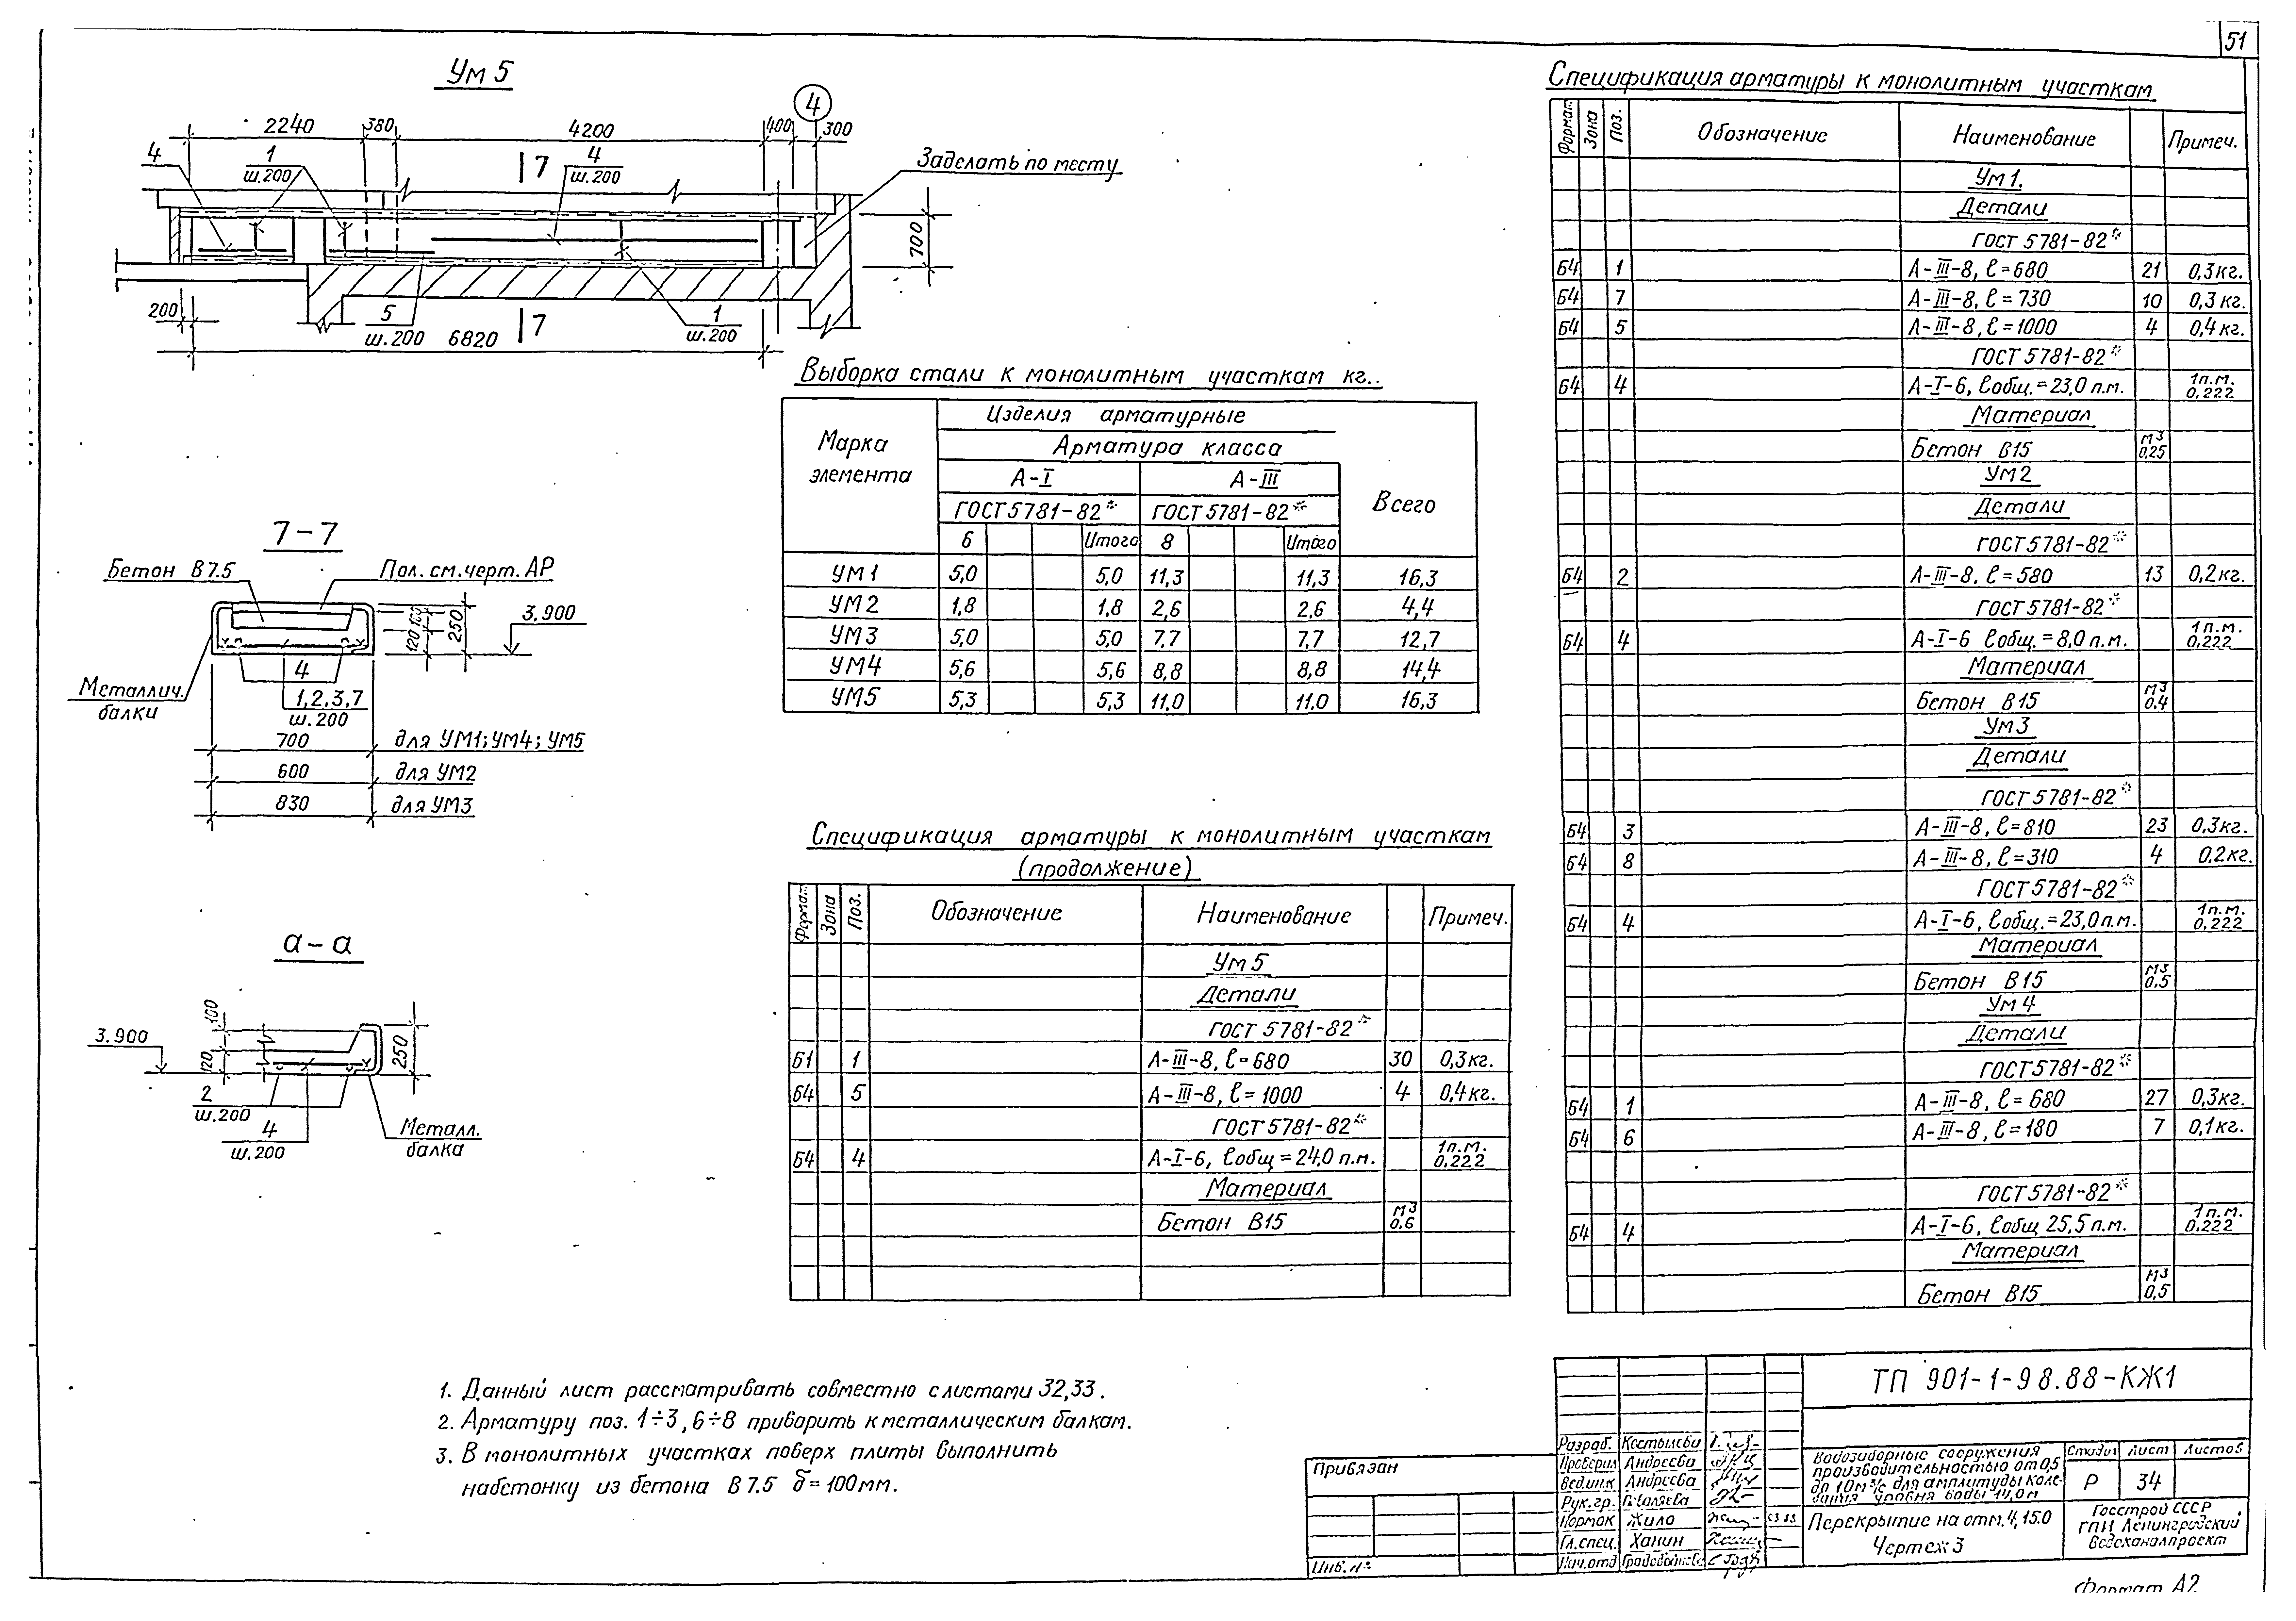 51
Ум 5
2240 380 4200 400 300
4
4
1
ш.200
7
4
ш.200
Заделать по месту
700
200
5
ш.200
6820
7
1
ш.200
7-7
Бетон В7.5
Пол. см. черт. АР
3.900
120 100 250
4
Металлич.
балки
1,2,3,7
ш.200
700 для УМ1; УМ4; УМ5
600 для УМ2
830 для УМ3
а-а
100
3.900
120
250
2
ш.200
4
ш.200
Металл.
балка
Выборка стали к монолитным участкам кг..
Марка элемента
Изделия арматурные
Арматура класса
А-I А-III
Всего
ГОСТ 5781-82* ГОСТ 5781-82*
6 Итого 8 Итого
УМ1 5,0 5,0 11,3 11,3 16,3
УМ2 1,8 1,8 2,6 2,6 4,4
УМ3 5,0 5,0 7,7 7,7 12,7
УМ4 5,6 5,6 8,8 8,8 14,4
УМ5 5,3 5,3 11,0 11,0 16,3
Спецификация арматуры к монолитным участкам
(продолжение)
Формат Зона Поз. Обозначение Наименование Примеч.
Ум 5
Детали
ГОСТ 5781-82*
Б1 1 А-III-8, ℓ=680 30 0,3кг.
Б4 5 А-III-8, ℓ=1000 4 0,4кг.
ГОСТ 5781-82*
Б4 4 А-I-6, ℓобщ=24,0 п.м. 1п.м. 0,222
Материал
Бетон В15 м3 0,6
Спецификация арматуры к монолитным участкам
Формат Зона Поз. Обозначение Наименование Примеч.
Ум 1.
Детали
ГОСТ 5781-82*
Б4 1 А-III-8, ℓ=680 21 0,3кг.
Б4 7 А-III-8, ℓ=730 10 0,3кг.
Б4 5 А-III-8, ℓ=1000 4 0,4кг.
ГОСТ 5781-82*
Б4 4 А-I-6, ℓобщ.=23,0 п.м. 1п.м. 0,222
Материал
Бетон В15 м3 0,25
Ум 2
Детали
ГОСТ 5781-82*
Б4 2 А-III-8, ℓ=580 13 0,2кг.
ГОСТ 5781-82*
Б4 4 А-I-6 ℓобщ.=8,0 п.м. 1п.м. 0,222
Материал
Бетон В15 м3 0,4
Ум 3
Детали
ГОСТ 5781-82*
Б4 3 А-III-8, ℓ=810 23 0,3кг.
Б4 8 А-III-8, ℓ=310 4 0,2кг.
ГОСТ 5781-82*
Б4 4 А-I-6, ℓобщ.=23,0п.м. 1п.м. 0,222
Материал
Бетон В15 м3 0,5
Ум 4
Детали
ГОСТ 5781-82*
Б4 1 А-III-8, ℓ=680 27 0,3кг.
Б4 6 А-III-8, ℓ=180 7 0,1кг.
ГОСТ 5781-82*
Б4 4 А-I-6, ℓобщ 25,5 п.м. 1п.м. 0,222
Материал
Бетон В15 м3 0,5
1. Данный лист рассматривать совместно с листами 32,33.
2. Арматуру поз. 1÷3, 6÷8 приварить к металлическим балкам.
3. В монолитных участках поверх плиты выполнить
набетонку из бетона В7.5 δ=100мм.
Привязан
Инв.№
ТП 901-1-98.88-КЖ1
Разраб.
Проверил Андреева
Вед.инж Андреева
Рук.гр.
Нормок Жило 03 88
Гл.спец. Ханин
Нач.отд
Водозаборные сооружения
производительностью от 0,5
до 10м³/с для амплитуды коле-
бания уровня воды 14,0м
Стадия Лист Листов
Р 34
Перекрытие на отм. 4,150
Чертеж 3
Госстрой СССР
ГПИ Ленинградский
Водоканалпроект
Формат А2